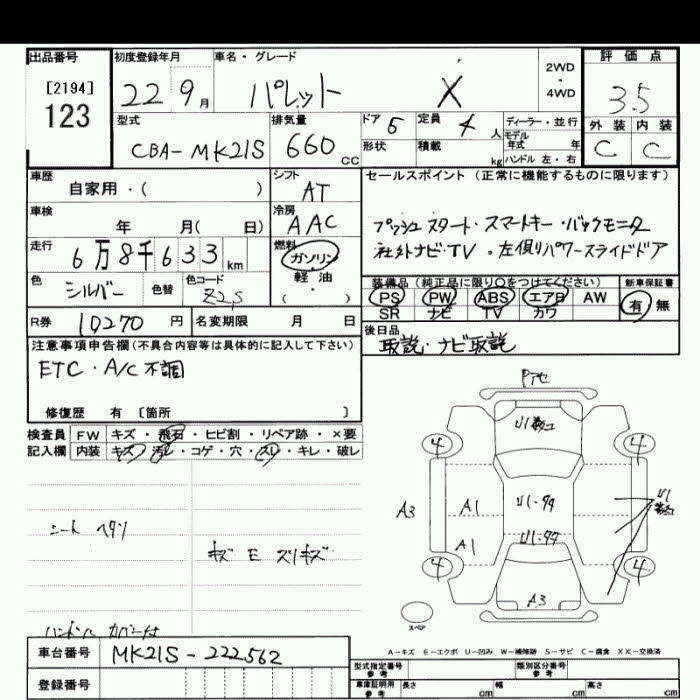 出品番号 初度登録年月 車名・グレード 2WD・4WD 評価点
[2194]
123
22 9月 パレット X 3.5
型式 排気量 ドア 5 定員 4人 ディーラー・並行 外装 内装
CBA-MK21S 660 cc 形状 積載 kg モデル年式 年 C C
ハンドル 左・右
車歴 シフト セールスポイント(正常に機能するものに限ります)
自家用・( ) AT
車検 冷房
年 月( 日) AAC プッシュスタート・スマートキー・バックモニタ
走行 燃料 社外ナビ・TV・左側りパワースライドドア
6万8千633km ガソリン
色 色替 色コード 軽・油 装備品(純正品に限り○をつけてください) 新車保証書
シルバー Z2S ( ) PS PW ABS エアB AW 有 無
SR ナビ TV カワ
R券 10270円 名変期限 月 日 後日品
取説・ナビ取説
注意事項申告欄(不具合内容等は具体的に記入して下さい)
ETC・A/C不調
修復歴 有 [箇所 ]
検査員 FW キズ・飛石・ヒビ割・リペア跡・×要
記入欄 内装 キズ・汚レ・コゲ・穴・スリ・キレ・破レ
4 4
A3 A1 U1
A1
シート ヘタリ キズ E スリキズ
4 4
A3
スペア
ハンドル カバー付
A-キズ E-エクボ U-凹み W-補修跡 S-サビ C-腐食 XX-交換済
車台番号 MK21S-222562
登録番号
型式指定番号 参考 類別区分番号 参考
車庫証明用 参考 長さ cm 幅 cm 高さ cm